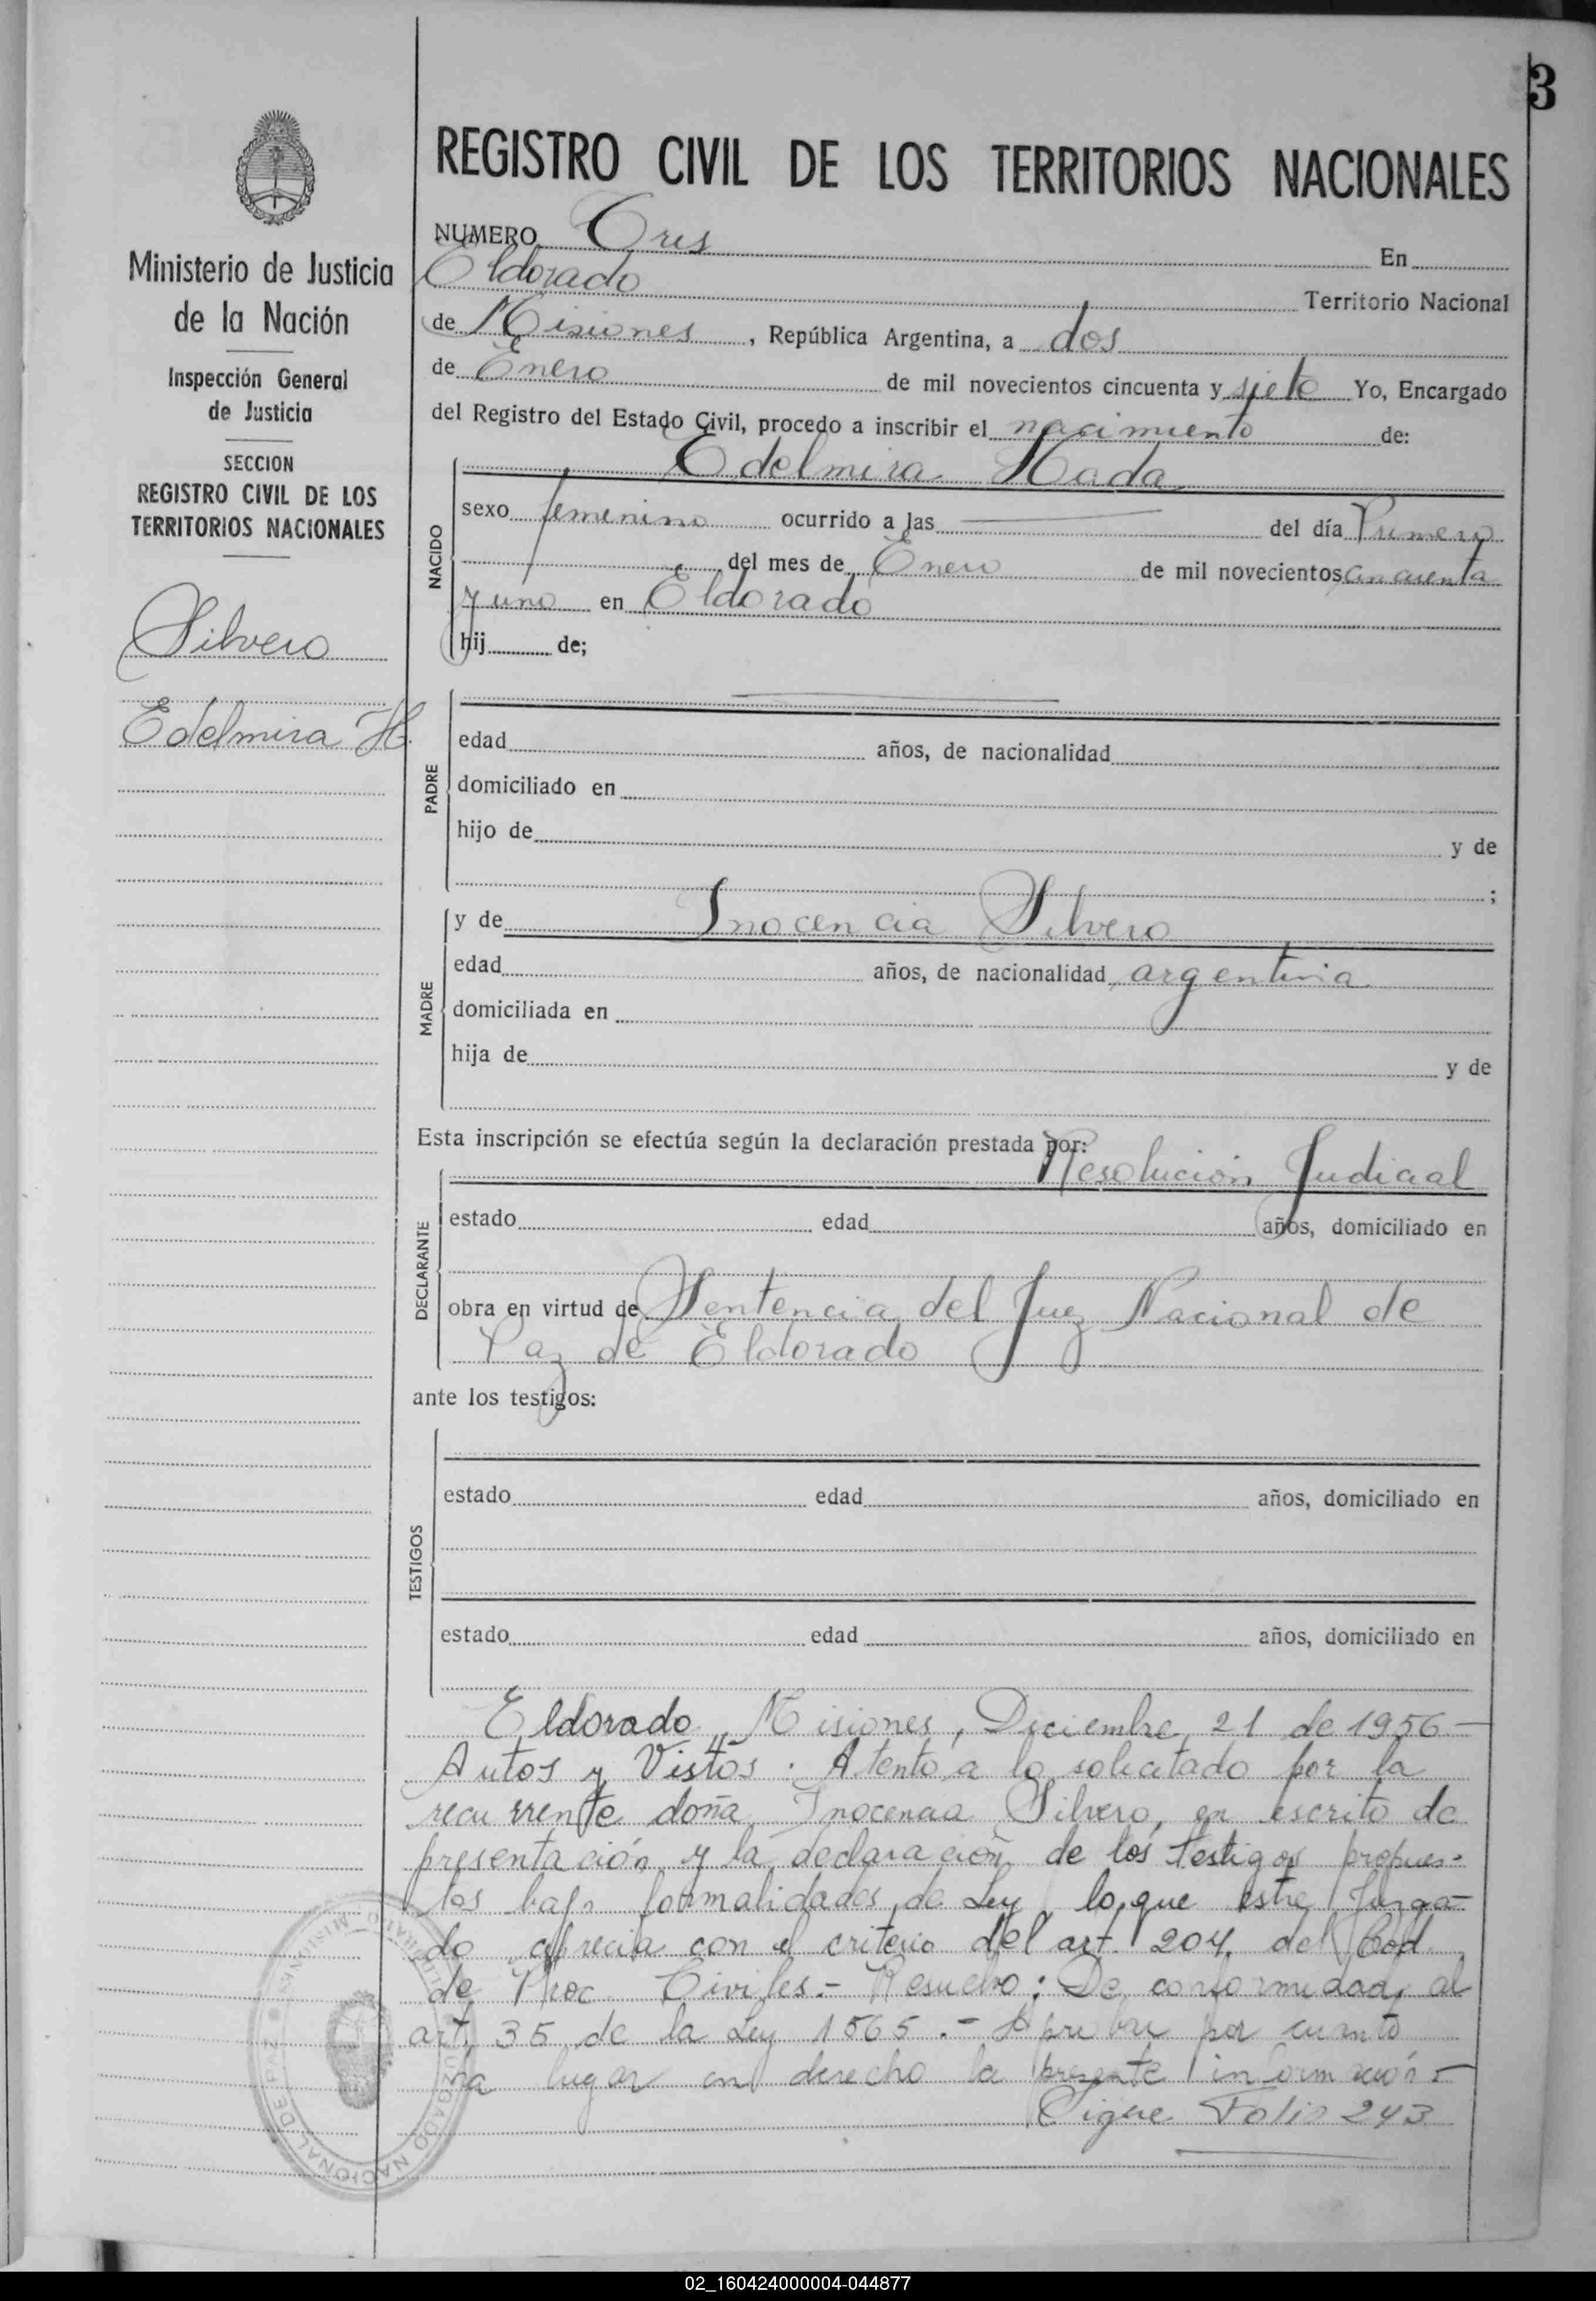 3
REGISTRO CIVIL DE LOS TERRITORIOS NACIONALES
Ministerio de Justicia
de la Nación
Inspección General
de Justicia
SECCION
REGISTRO CIVIL DE LOS
TERRITORIOS NACIONALES
Silvero
Edelmira H.
NUMERO Tres En
Eldorado Territorio Nacional
de Misiones, República Argentina, a dos
de Enero de mil novecientos cincuenta y siete Yo, Encargado
del Registro del Estado Civil, procedo a inscribir el nacimiento de:
NACIDO
Edelmira Hada
sexo femenino ocurrido a las del día Primero
del mes de Enero de mil novecientos cincuenta
y uno en Eldorado
hij de;
PADRE
edad años, de nacionalidad
domiciliado en
hijo de y de
;
MADRE
y de Inocencia Silvero
edad años, de nacionalidad argentina
domiciliada en
hija de y de
Esta inscripción se efectúa según la declaración prestada por:
Resolución Judicial
DECLARANTE
estado edad años, domiciliado en
obra en virtud de Sentencia del Juez Nacional de
Paz de Eldorado
ante los testigos:
TESTIGOS
estado edad años, domiciliado en
estado edad años, domiciliado en
Eldorado, Misiones, Diciembre 21 de 1956 -
Autos y Vistos: Atento a lo solicitado por la
recurrente doña Inocencia Silvero, en escrito de
presentación y la declaración de los testigos propues-
tos bajo formalidades de Ley lo que este Juzga-
do aprecia con el criterio del art. 204 del Cod.
de Proc. Civiles.- Resuelvo: De conformidad al
art. 35 de la Ley 1565.- Apruebe por cuanto
ha lugar en derecho la presente información -
Sigue Folio 243
JUZGADO NACIONAL DE PAZ
02_160424000004-044877